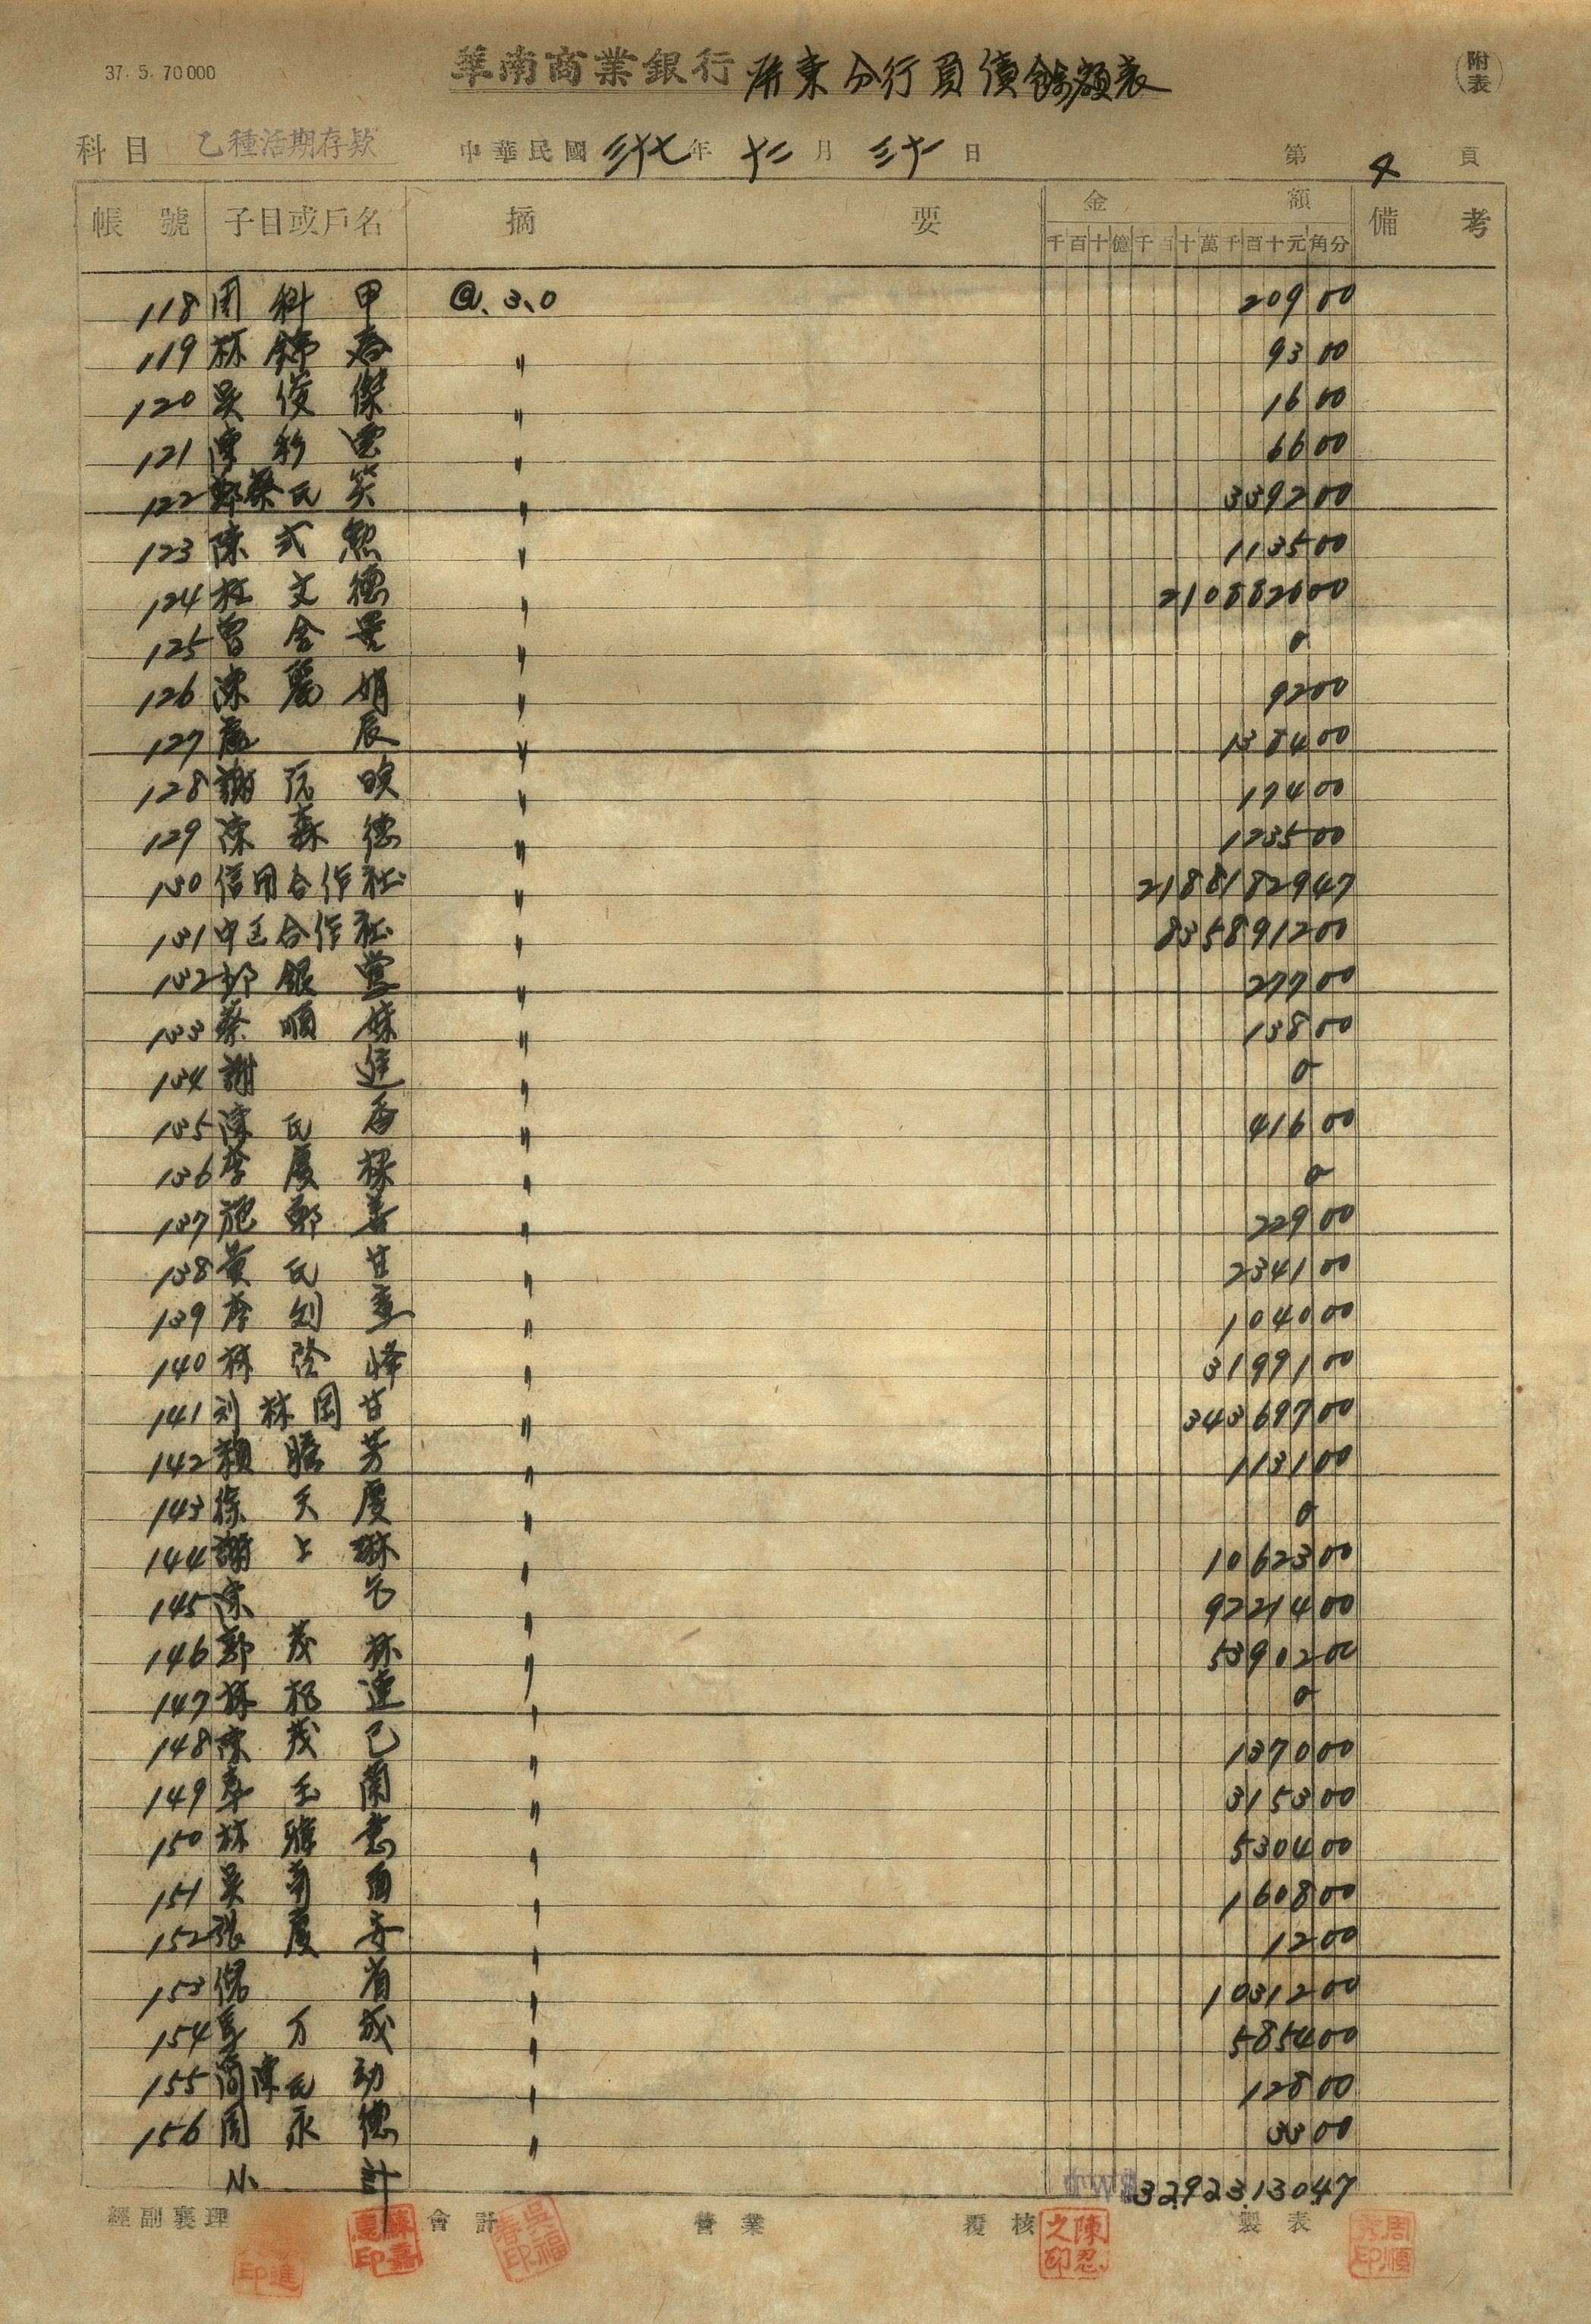 37. 5. 70000
華南商業銀行 屏東分行負債餘額表
附表
科目 乙種活期存款 中華民國 三十七 年 十二 月 三十一 日 第 4 頁
帳號 子目或戶名 摘要 金額 備考
千百十億千百十萬千百十元角分
118 周科甲 @.3.0 209 00
119 林錦春 〃 93 00
120 吳俊傑 〃 16 00
121 陳彩雲 〃 66 00
122 鄭蔡氏笑 〃 3392 00
123 陳式 〃 1135 00
124 文德 〃 2108820 00
125 曾 〃 0
126 陳麗娟 〃 92 00
127 辰 〃 1384 00
128 謝 〃 174 00
129 陳森德 〃 1235 00
130 信用合作社 〃 21881829 47
131 合作社 〃 8358912 00
132 邱銀 〃 277 00
133 蔡順妹 〃 138 00
134 謝進 〃 0
135 陳氏香 〃 416 00
136 李慶祿 〃 0
137 施鄭善 〃 229 00
138 黃氏甘 〃 2341 00
139 李刘 〃 1040 00
140 林 〃 31991 00
141 刘林岡甘 〃 343697 00
142 賴勝芳 〃 1131 00
143 徐天慶 〃 0
144 謝上琳 〃 10623 00
145 陳 〃 92214 00
146 郭茂林 〃 53902 00
147 林連 〃 0
148 陳茂己 〃 1370 00
149 李玉蘭 〃 3153 00
150 林雅意 〃 5304 00
151 吳 〃 1608 00
152 張慶安 〃 12 00
153 省 〃 10312 00
154 万成 〃 5854 00
155 簡陳氏 〃 128 00
156 周永德 〃 33 00
小計 32,923,130.47
經副襄理 會計 營業 覆核 製表
進印
蘇嘉 印
吳福春印
陳忍之印
周順 印